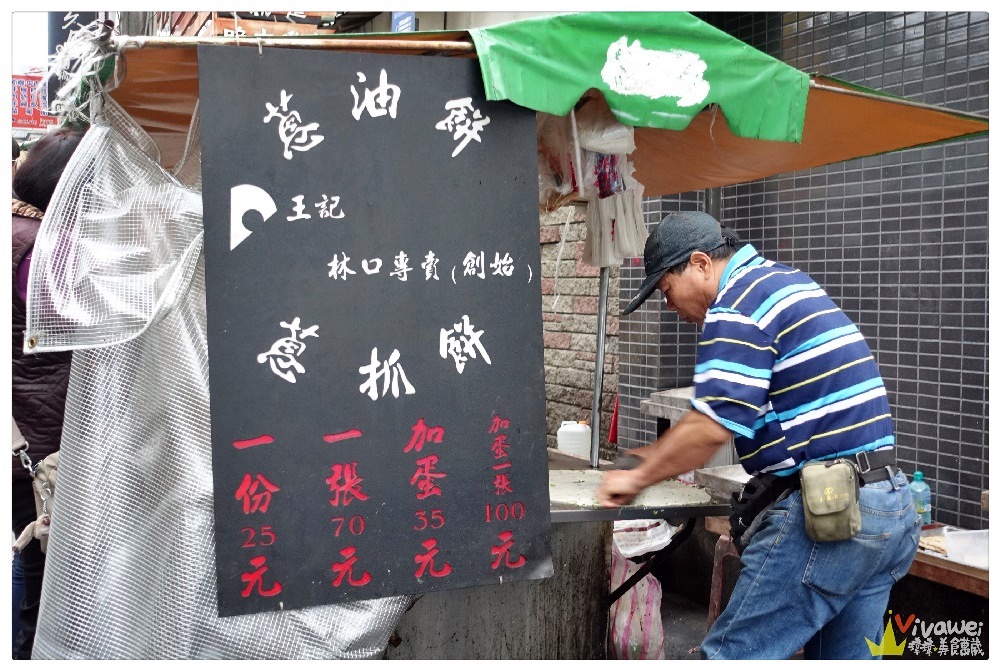 蔥油餅
王記
林口專賣（創始）
蔥抓餅
一份25元
一張70元
加蛋35元
加蛋一張100元
Vivawei